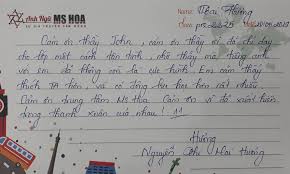 Anh Ngữ MS HOA
Name: Mai Hương
Class: pre
Cảm ơn thầy John, cảm ơn thầy vì đã chỉ dạy
cho lớp một cách tận tình, nhờ thầy mà tiếng anh
với em đã không còn là cực hình. Em cảm thấy
thích TA hơn, và có động lực học hơn rất nhiều.
Cảm ơn trung tâm Ms Hoa. Cảm ơn vì đã xuất hiện
trong thanh xuân của nhau! 11
Hương
Nguyễn Thị Mai Hương